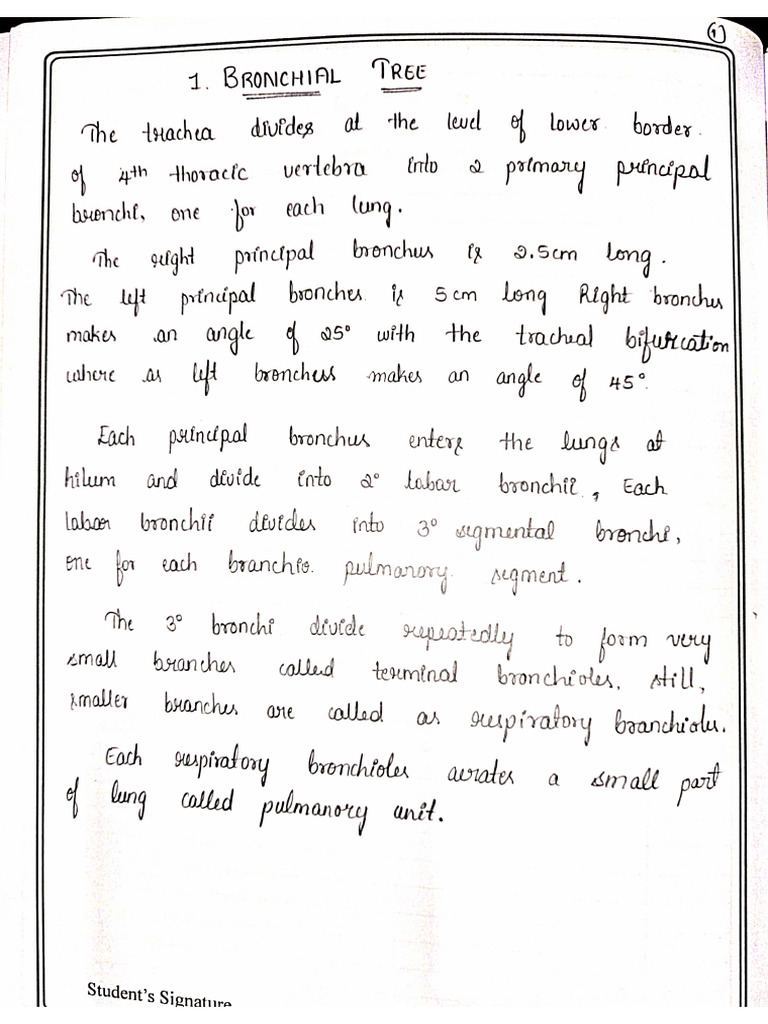 1
1. BRONCHIAL TREE
The trachea divides at the level of lower border
of 4th thoracic vertebra into 2 primary principal
bronchi, one for each lung.
The right principal bronchus is 2.5cm long.
The left principal bronches is 5cm long Right bronchus
makes an angle of 25° with the tracheal bifurcation
where as left bronchus makes an angle of 45°.
Each principal bronchus enters the lungs at
hilum and divide into 2° labar bronchii, Each
labar bronchii divides into 3° segmental bronchi,
one for each branchio. pulmanory. segment.
The 3° bronchi divide repeatedly to form very
small branches called terminal bronchioles. still,
smaller branches are called as respiratory branchioles.
Each respiratory bronchioles aerates a small part
of lung called pulmanory unit.
Student's Signature